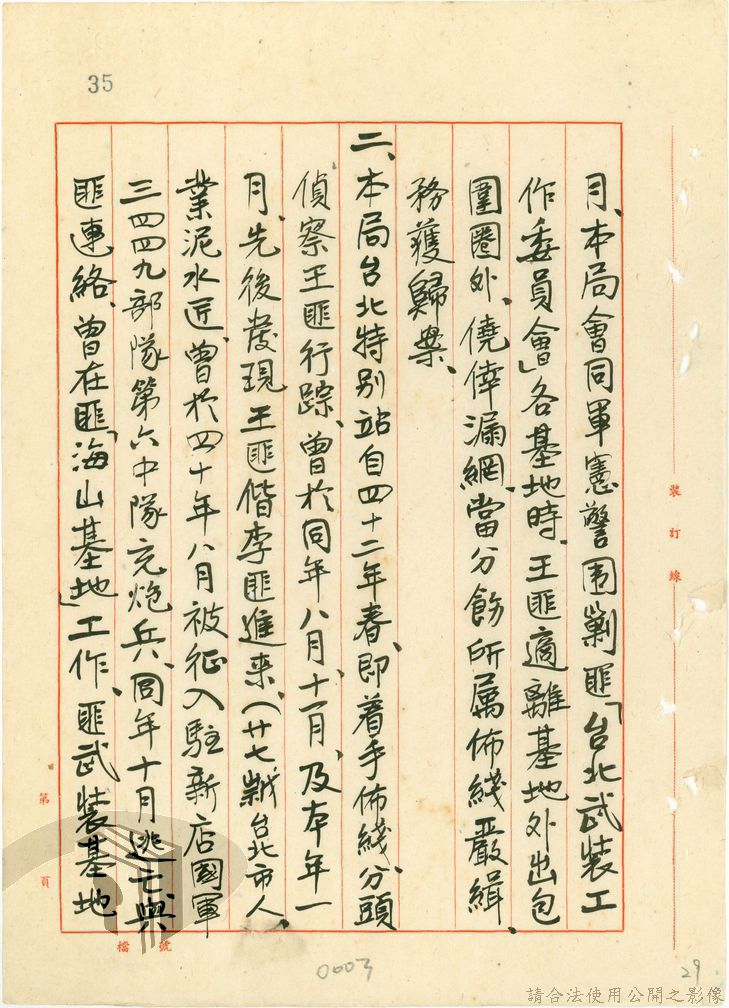 35
月、本局會同軍憲警围剿匪「台北武裝工
作委員會」各基地時、王匪適離基地外出包
圍圈外、僥倖漏網、當分飭所属佈綫嚴緝、
務獲歸案、
二、本局台北特别站自四十二年春、即着手佈綫、分頭
偵察王匪行踪、曾於同年八月、十一月、及本年一
月、先後發現王匪偕李匪進来、（廿七嵗台北市人、
業泥水匠、曾於四十年八月被征入駐新店國軍
三四四九部隊第六中隊充炮兵、同年十月逃亡與
匪連絡、曾在匪「海山基地」工作、匪武裝基地
裝訂線
第　頁
檔號
0003
29
請合法使用公開之影像